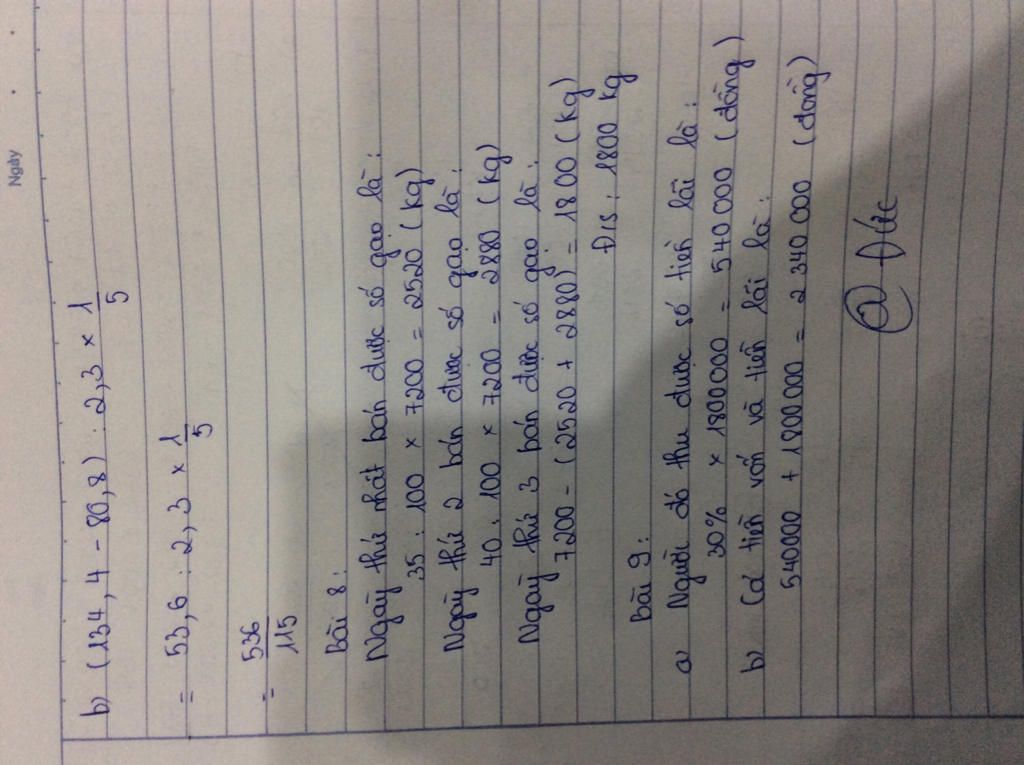 Ngày
b) (134,4 - 80,8) : 2,3 × 1/5
= 53,6 : 2,3 × 1/5
= 536/115
Bài 8 :
Ngày thứ nhất bán được số gạo là :
35 : 100 × 7200 = 2520 (kg)
Ngày thứ 2 bán được số gạo là :
40 : 100 × 7200 = 2880 (kg)
Ngày thứ 3 bán được số gạo là :
7200 - (2520 + 2880) = 1800 (kg)
Đ/S : 1800 kg
Bài 9 :
a) Người đó thu được số tiền lãi là :
30% × 1800000 = 540000 (đồng)
b) Cả tiền vốn và tiền lãi là :
540000 + 1800000 = 2 340 000 (đồng)
@ Đức